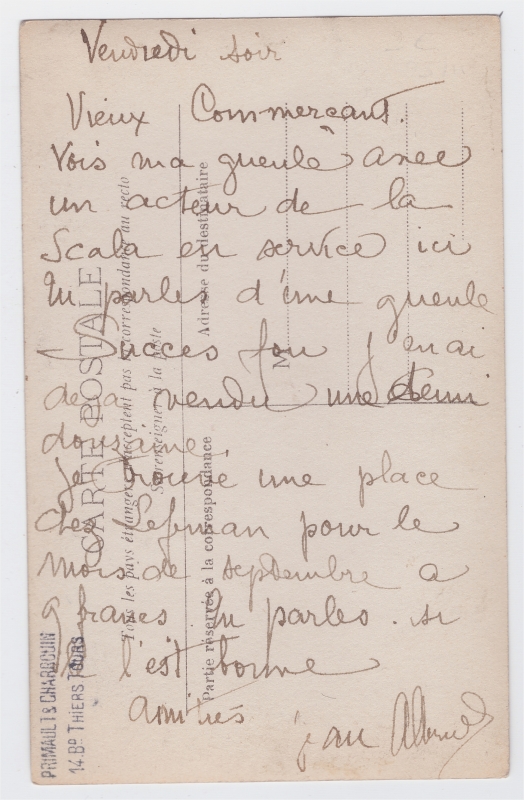 Vendredi soir
Vieux Commerçant.
Vois ma gueule avec
un acteur de la
Scala en service ici
Tu parles d'une gueule
Succes fou j'enai
deja vendu une demi
dousaine.
Je trouve une place
chez pour le
Mois de septembre a
9 francs Tu parles. si
l'est bonne
amitiés jean
CARTE POSTALE
Tous les pays étrangers n'acceptent pas la correspondance au recto
Se renseigner à la poste
Partie réservée à la correspondance
Adresse du destinataire
M
PRIMAULT & CHARBOUIN
14. BD THIERS TOURS